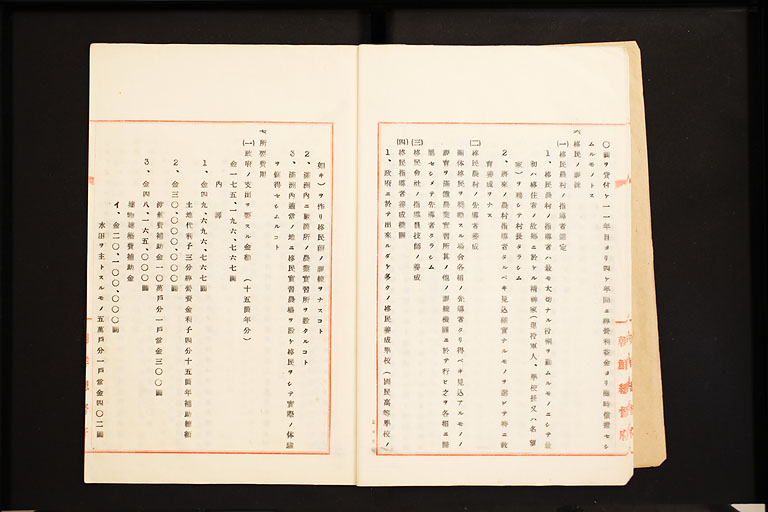 〇圓ヲ貸付ケ一一年目ヨリ四ケ年間ニ經營利益金ヨリ臨時償還セシ
ムルモノトス
六 移民ノ訓練
(一)移民農村ノ指導者選定
1、移民農村ノ指導者ハ最モ大切ナル役割ヲ勤ムルモノニシテ最
初ハ移住者ノ故郷ニ於ケル精神家(退役軍人、學校長又ハ名望
家)ヲ得シテ村長タラシム
2、將來ノ農村指導者タルベキ見込確實ナルモノヲ選ビテ特ニ教
育養成ヲナス
(二)移民農村ノ先導者養成
團体移民ヲ獎勵スル場合各組ノ先導者タリ得ベキ見込アルモノノ
教育ヲ滿鮮農業實習所其ノ他ノ訓練機關ニ於テ行ヒ之ヲ各組ニ歸
屬セシメテ先導者タラシム
(三)移民會社ノ指導員技師ノ養成
(四)移民指導者養成機關
1、政府ニ於テ出來ルダケ多クノ移民養成學校(國民高等學校ノ
如キ)ヲ作リ移民前ノ訓練ヲナスコト
2、滿洲內ニ數箇所ノ農業實習所ヲ設クルコト
3、滿洲內適當ノ地ニ移民實習農場ヲ設ケ移民ヲシテ實際ノ体驗
ヲ修得セシムルコト
七 所要費用
(一)政府ノ支出ヲ要スル金額 (十五箇年分)
金一七五、一九六、七六七圓
內譯
1、金四九、六九六、七六七圓
土地代利子三分經營資金利子四分十五箇年補助總額
2、金三〇、〇〇〇、〇〇〇圓
渡航費補助金一〇萬戶分一戶當金三〇〇圓
3、金四八、一六五、〇〇〇圓
建物建築費補助金
イ、金二〇、一〇〇、〇〇〇圓
水田ヲ主トスルモノ五萬戶分一戶當金四〇二圓
朝鮮總督府